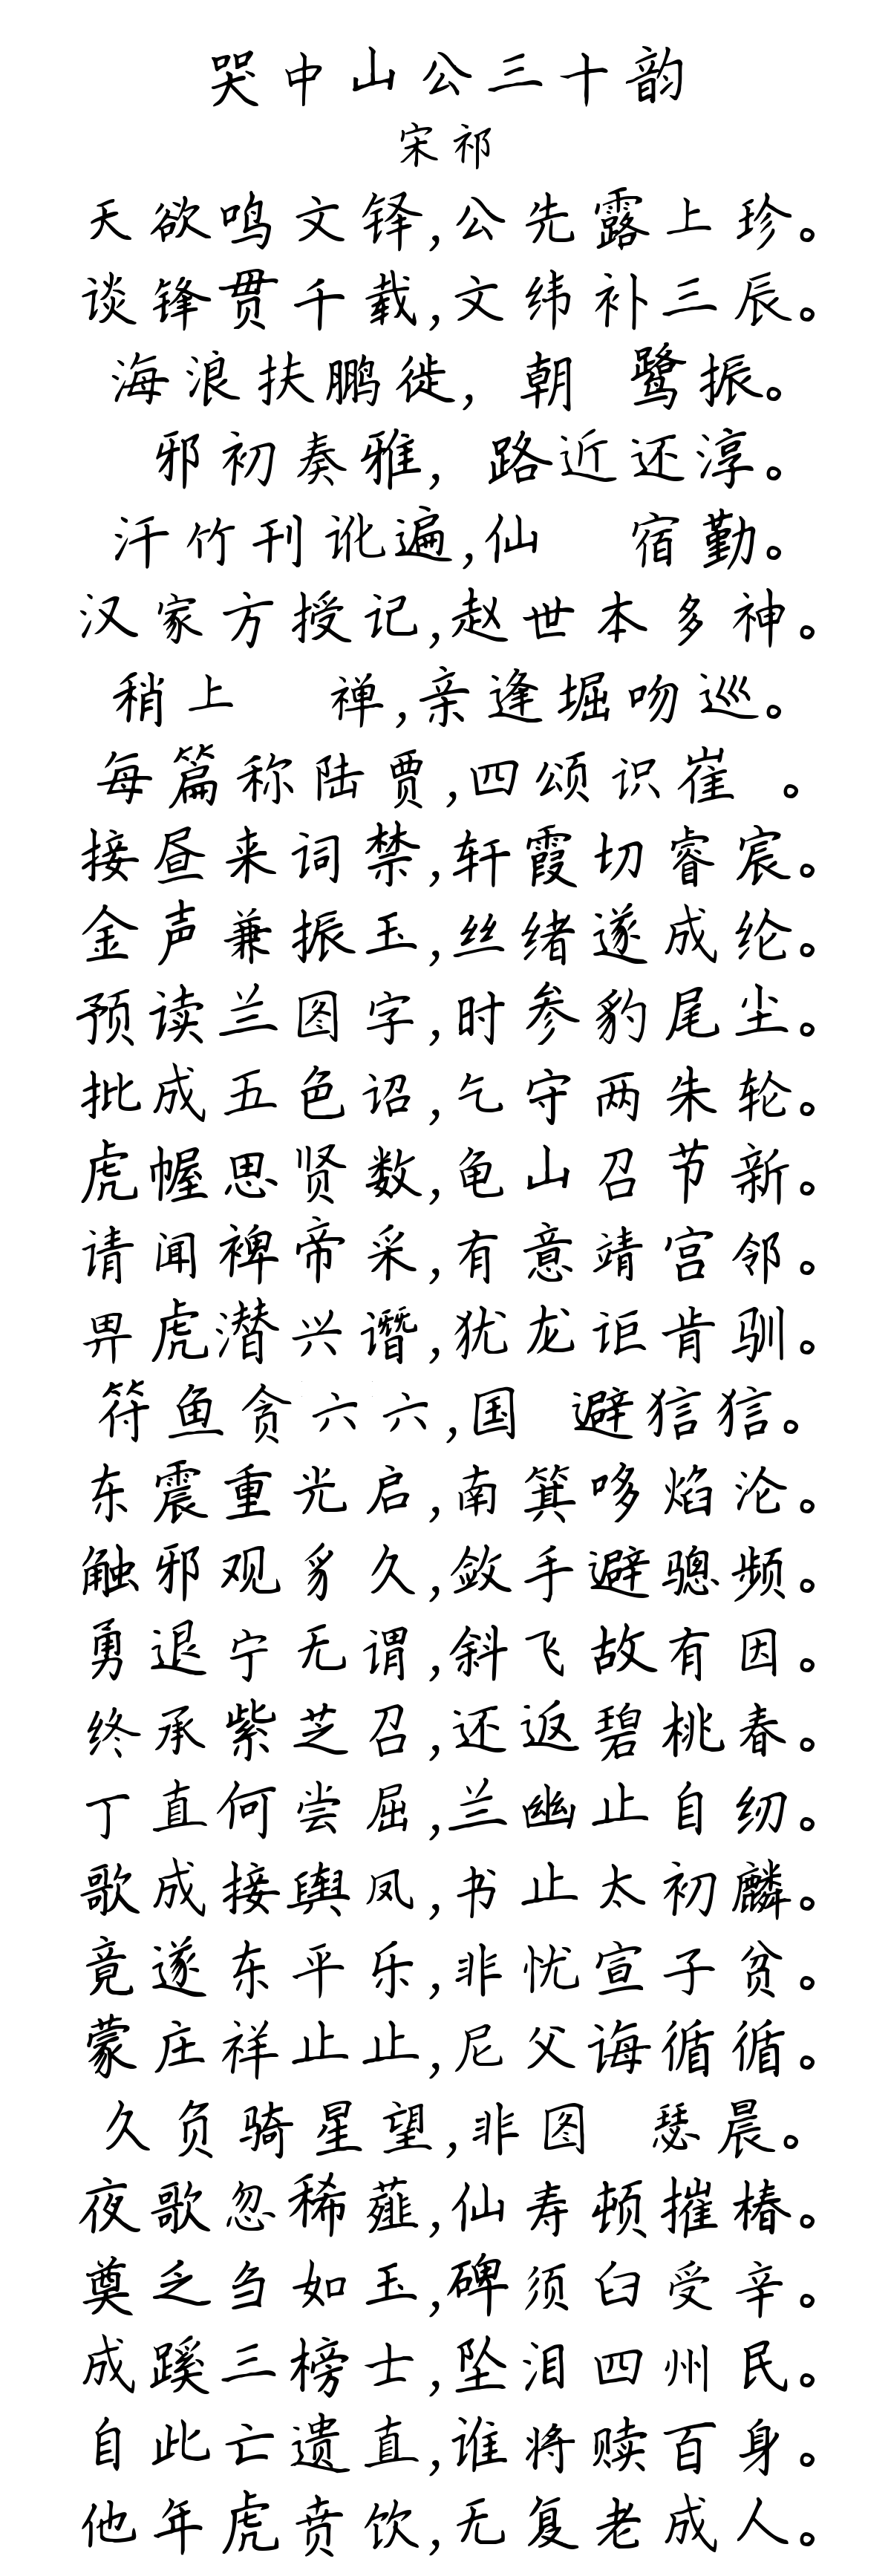 哭中山公三十韵
宋祁
天欲鸣文铎,公先露上珍。
谈锋贯千载,文纬补三辰。
海浪扶鹏徙, 朝 鹭振。
邪初奏雅, 路近还淳。
汗竹刊讹遍,仙 宿勤。
汉家方授记,赵世本多神。
稍上 禅,亲逢堀吻巡。
每篇称陆贾,四颂识崔 。
接昼来词禁,轩霞切睿宸。
金声兼振玉,丝绪遂成纶。
预读兰图字,时参豹尾尘。
批成五色诏,乞守两朱轮。
虎幄思贤数,龟山召节新。
请闻裨帝采,有意靖宫邻。
畀虎潜兴谮,犹龙讵肯驯。
符鱼贪六六,国 避狺狺。
东震重光启,南箕哆焰沦。
触邪观豸久,敛手避骢频。
勇退宁无谓,斜飞故有因。
终承紫芝召,还返碧桃春。
丁直何尝屈,兰幽止自纫。
歌成接舆凤,书止太初麟。
竟遂东平乐,非忧宣子贫。
蒙庄祥止止,尼父诲循循。
久负骑星望,非图 瑟晨。
夜歌忽稀薤,仙寿顿摧椿。
奠乏刍如玉,碑须臼受辛。
成蹊三榜士,坠泪四州民。
自此亡遗直,谁将赎百身。
他年虎贲饮,无复老成人。